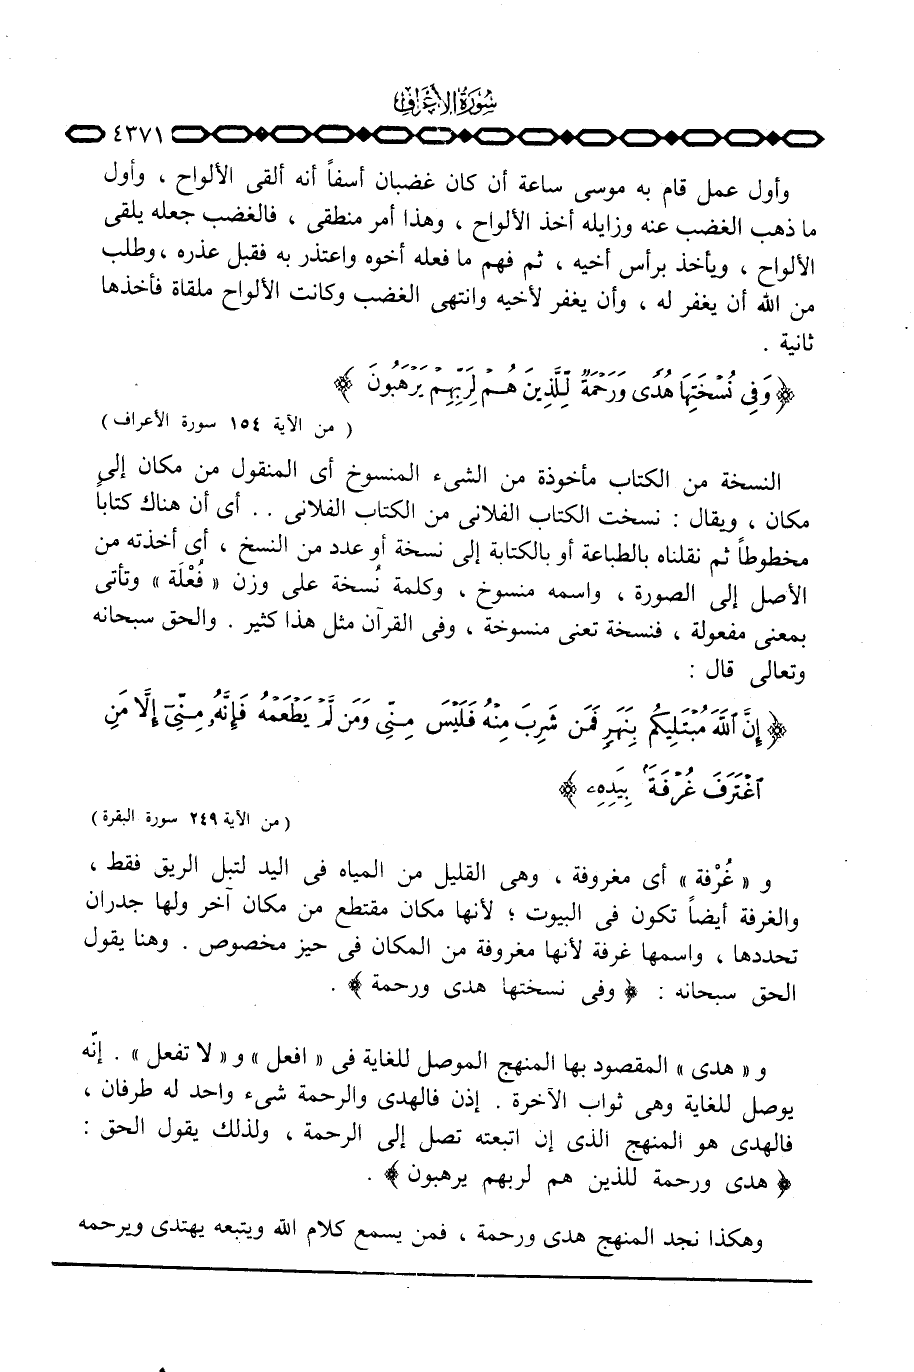 سورة الأعراف
٤٣٧١
وأول عمل قام به موسى ساعة أن كان غضبان أسفاً أنه ألقى الألواح ، وأول
ما ذهب الغضب عنه وزايله أخذ الألواح ، وهذا أمر منطقى ، فالغضب جعله يلقى
الألواح ، ويأخذ برأس أخيه ، ثم فهم ما فعله أخوه واعتذر به فقبل عذره ، وطلب
من الله أن يغفر له ، وأن يغفر لأخيه وانتهى الغضب وكانت الألواح ملقاة فأخذها
ثانية .
﴿ وَفِى نُسْخَتِهَا هُدًى وَرَحْمَةٌ لِّلَّذِينَ هُمْ لِرَبِّهِمْ يَرْهَبُونَ ﴾
( من الآية ١٥٤ سورة الأعراف )
النسخة من الكتاب مأخوذة من الشىء المنسوخ أى المنقول من مكان إلى
مكان ، ويقال : نسخت الكتاب الفلانى من الكتاب الفلانى . . أى أن هناك كتاباً
مخطوطاً ثم نقلناه بالطباعة أو بالكتابة إلى نسخة أو عدد من النسخ ، أى أخذته من
الأصل إلى الصورة ، واسمه منسوخ ، وكلمة نُسخة على وزن « فُعْلَة » وتأتى
بمعنى مفعولة ، فنسخة تعنى منسوخة ، وفى القرآن مثل هذا كثير . والحق سبحانه
وتعالى قال :
﴿ إِنَّ ٱللَّهَ مُبْتَلِيكُم بِنَهَرٍ فَمَن شَرِبَ مِنْهُ فَلَيْسَ مِنِّى وَمَن لَّمْ يَطْعَمْهُ فَإِنَّهُۥ مِنِّىٓ إِلَّا مَنِ
ٱغْتَرَفَ غُرْفَةًۢ بِيَدِهِۦ ﴾
( من الآية ٢٤٩ سورة البقرة )
و « غُرْفة » أى مغروفة ، وهى القليل من المياه فى اليد لتبل الريق فقط ،
والغرفة أيضاً تكون فى البيوت ؛ لأنها مكان مقتطع من مكان آخر ولها جدران
تحددها ، واسمها غرفة لأنها مغروفة من المكان فى حيز مخصوص . وهنا يقول
الحق سبحانه : ﴿ وفى نسختها هدى ورحمة ﴾ .
و « هدى » المقصود بها المنهج الموصل للغاية فى « افعل » و « لا تفعل » . إنّه
يوصل للغاية وهى ثواب الآخرة . إذن فالهدى والرحمة شىء واحد له طرفان ،
فالهدى هو المنهج الذى إن اتبعته تصل إلى الرحمة ، ولذلك يقول الحق :
﴿ هدى ورحمة للذين هم لربهم يرهبون ﴾ .
وهكذا نجد المنهج هدى ورحمة ، فمن يسمع كلام الله ويتبعه يهتدى ويرحمه